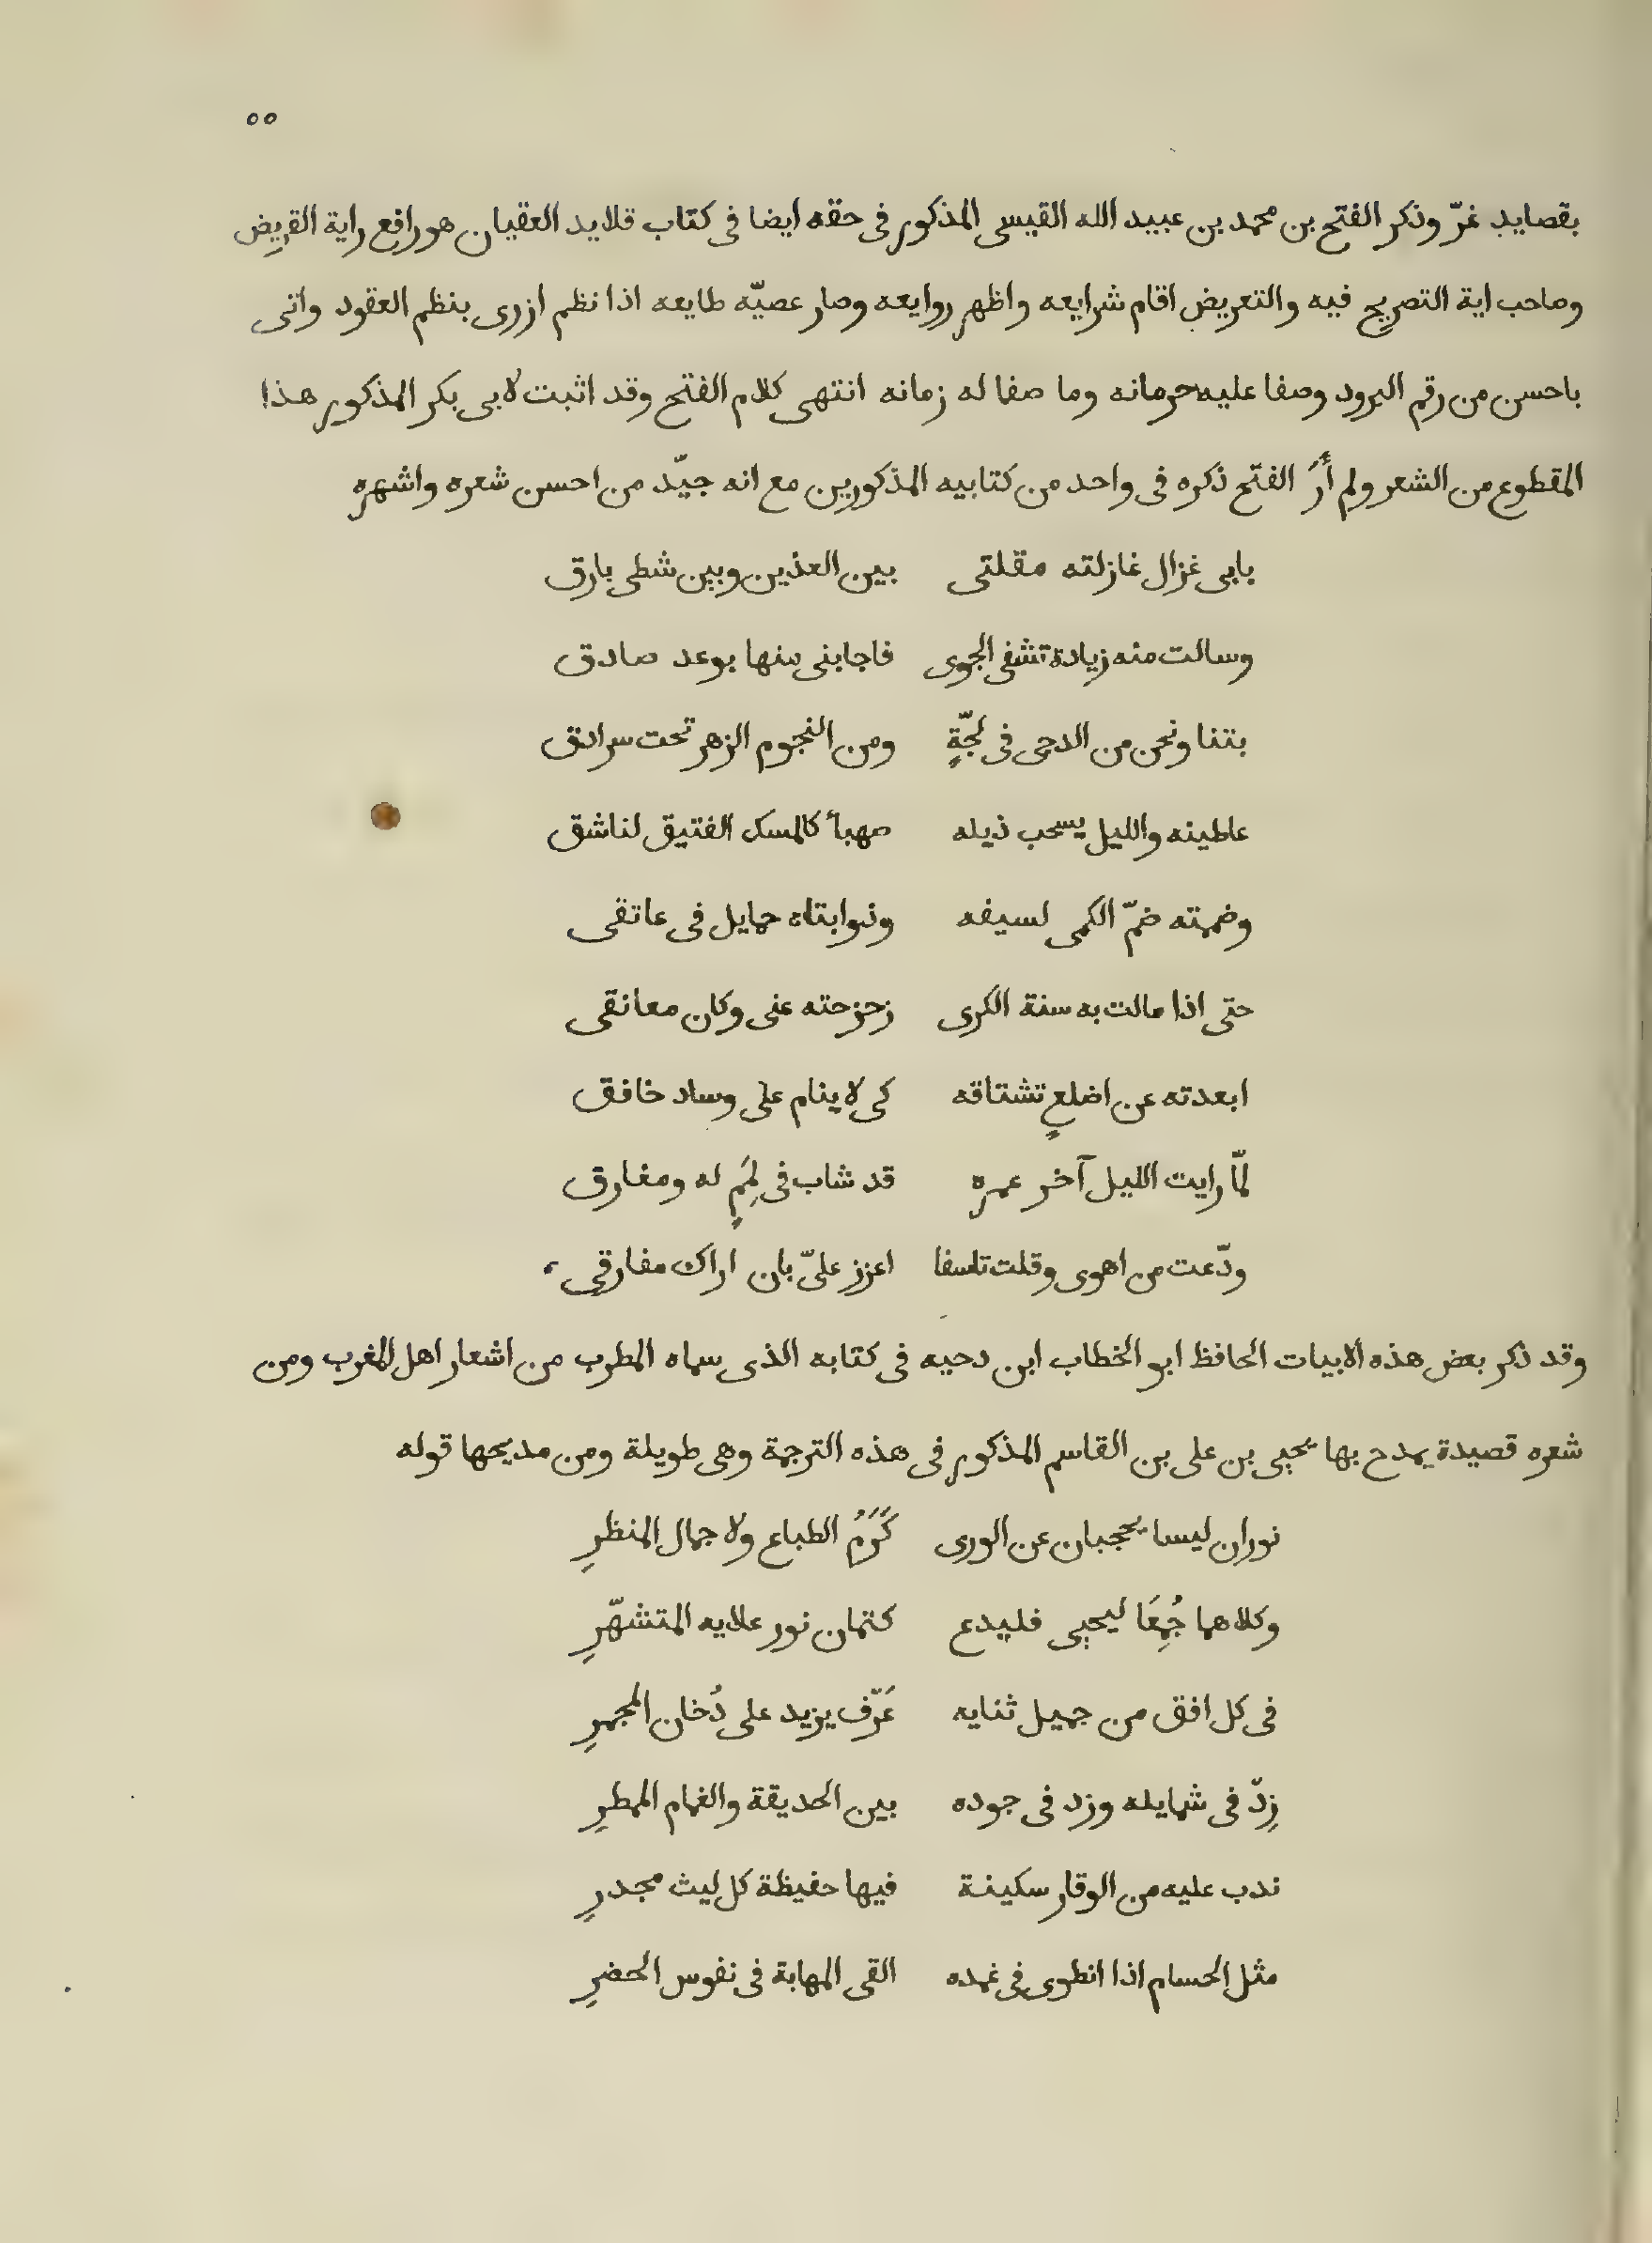 ٥٥
بقصايد غرّ وذكر الفتح بن محمد بن عبيد الله القيسى المذكور فى حقه ايضا فى كتاب قلايد العقيان هو رافع راية القريض
وصاحب اية التصريح فيه والتعريض اقام شرايعه واظهر روايعه وصار عصيّه طايعه اذا نظم ازرى بنظم العقود واتى
باحسن من رقم البرود وصفا عليه حرمانه وما صفا له زمانه انتهى كلام الفتح وقد اثبت لابى بكر المذكور هذا
المقطوع من الشعر ولم أرَ الفتح ذكره فى واحد من كتابيه المذكورين مع انه جيّد من احسن شعره واشهره
بابى غزال غازلته مقلتى بين العذين وبين شطى بارق
وسالت منه زيادة تشفى الجوى فاجابنى منها بوعد صادق
بتنا ونحن من الدجى فى لجّةٍ ومن النجوم الزهر تحت سرادق
عاطيته والليل يسحب ذيله صهبأ كالمسك الفتيق لناشق
وضممته ضمّ الكمى لسيفه وذوابتاه حمايل فى عاتقى
حتى اذا مالت به سنة الكرى زحزحته عنى وكان معانقى
ابعدته عن اضلعٍ تشتاقه كى لا ينام على وساد خافق
لمّا رايت الليل آخر عمره قد شاب فى لِمَمٍ له ومفارق
ودّعت من اهوى وقلت تاسفا اعزز علىّ بان اراك مفارقى
وقد ذكر بعض هذه الابيات الحافظ ابو الخطاب ابن دحيه فى كتابه الذى سماه المطرب من اشعار اهل المغرب ومن
شعره قصيدة يمدح بها يحيى بن على بن القاسم المذكور فى هذه الترجمة وهى طويلة ومن مديحها قوله
نوران ليسا يحجبان عن الورى كَرَمُ الطباع ولا جمال المنظرِ
وكلاهما جُمِعَا ليحيى فليدع كتمان نور علايه المتشهّرِ
فى كل افق من جميل ثنايه عَرّف يزيد على دُخان المجمرِ
زِدّ فى شمايله وزد فى جوده بين الحديقة والغمام الممطرِ
ندب عليه من الوقار سكينة فيها حفيظة كل ليث مجدرِ
مثل الحسام اذا انطوى فى غمده القى المهابة فى نفوس الحضرِ